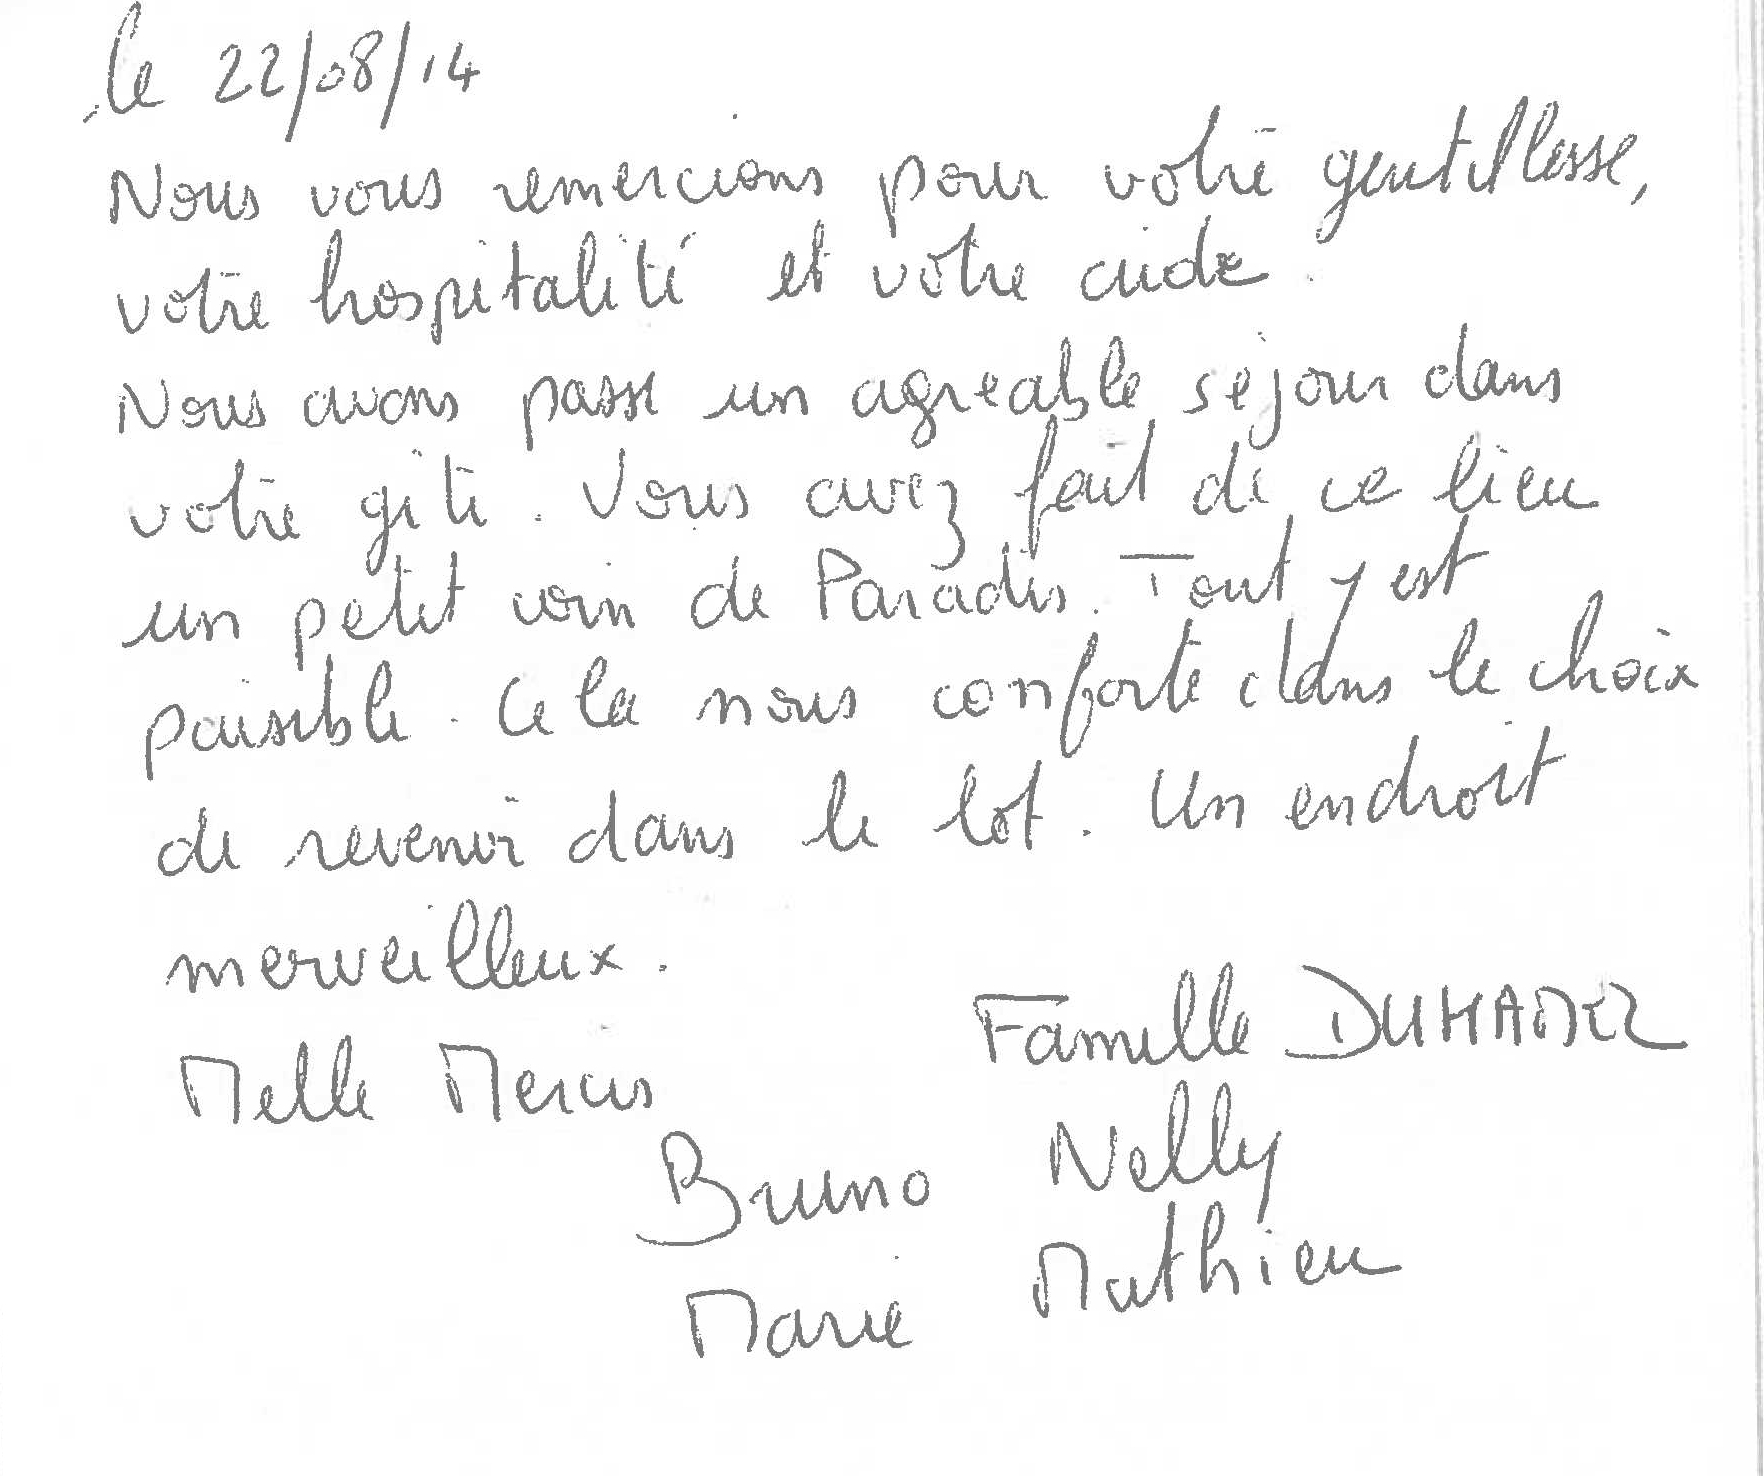 le 22/08/14
Nous vous remercions pour votre gentillesse,
votre hospitalité et votre aide.
Nous avons passé un agréable séjour dans
votre gîte. Vous avez fait de ce lieu
un petit coin de Paradis. Tout y est
paisible. Cela nous conforte dans le choix
de revenir dans le lot. Un endroit
merveilleux.
Famille DUHAMEL
Melle Mercis
Bruno Nelly
Marie Mathieu